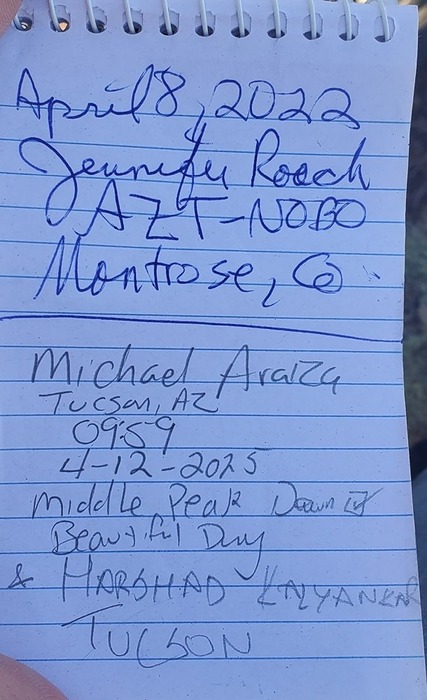 April 8, 2022
Jennifer Roach
AZT-NOBO
Montrose, Co.
Michael Araiza
Tucson, AZ
0959
4-12-2025
Middle Peak Down
Beautiful Day
& HARSHAD KALYANKAR
TUCSON